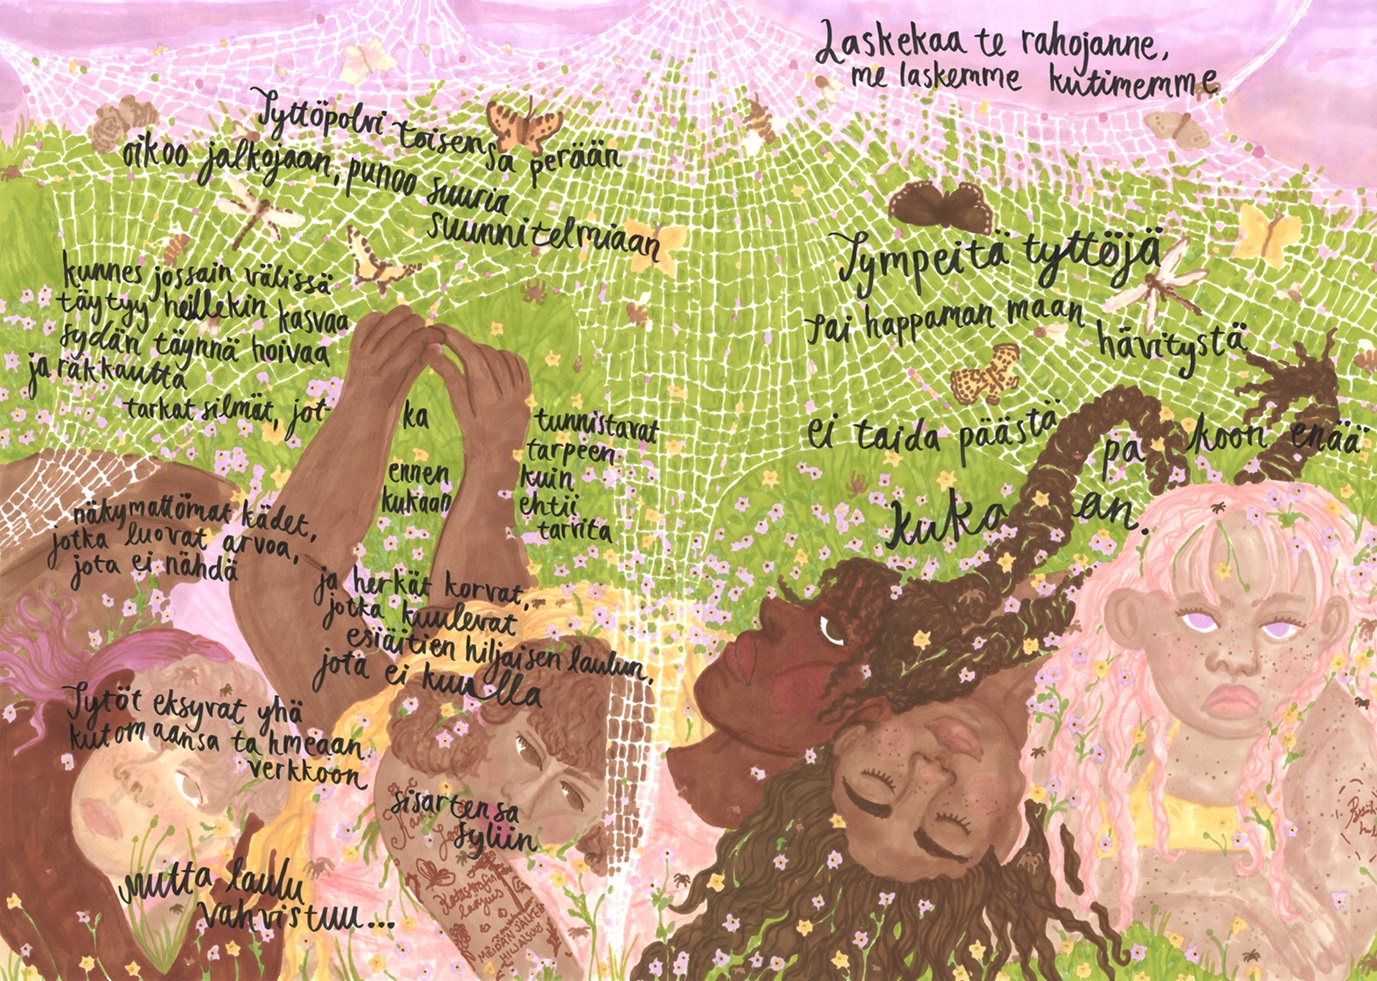 Tyttöpolvi toisensa perään
oikoo jalkojaan, punoo suuria
suunnitelmiaan
kunnes jossain välissä
täytyy heillekin kasvaa
sydän täynnä hoivaa
ja rakkautta
tarkat silmät, jotka
tunnistavat
tarpeen
ennen kuin
kukaan ehtii
tarvita
näkymättömät kädet,
jotka luovat arvoa,
jota ei nähdä
ja herkät korvat,
jotka kuulevat
esiäitien hiljaisen laulun,
jota ei kuulla
Tytöt eksyvät yhä
kutomaansa tahmeaan
verkkoon
sisartensa
syliin
mutta laulu
vahvistuu...
MEIDÄN
Laskekaa te rahojanne,
me laskemme kutimemme
Tympeitä tyttöjä
sai happaman maan
hävitystä
ei taida päästä pakoon enää
kukaan.